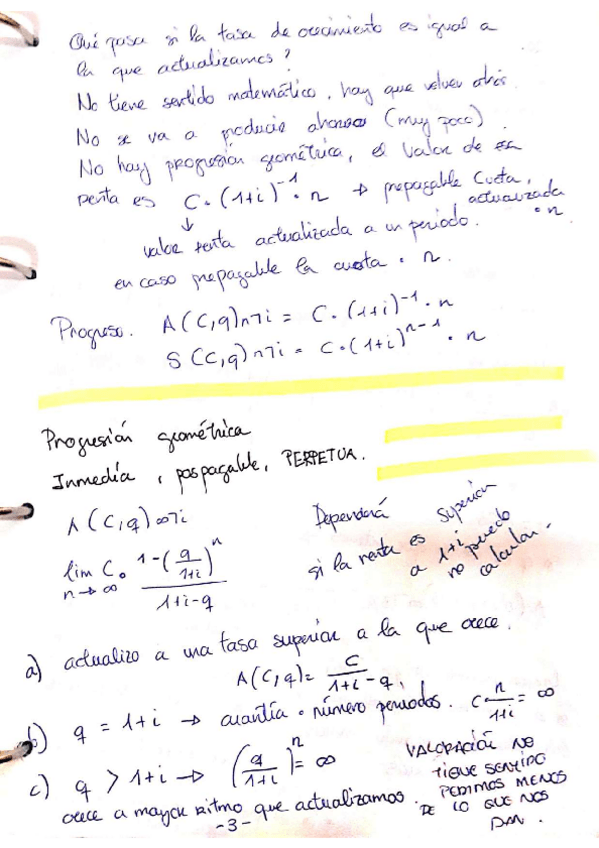 Qué pasa si la tasa de crecimiento es igual a
la que actualizamos?
No tiene sentido matemático, hay que volver atrás
No se va a producir ahorros (muy poco)
No hay progresión geométrica, el valor de la
renta es C·(1+i)⁻¹·n → prepagable Cuota,
actualizada
· n
↓
valor renta actualizada a un periodo.
en caso prepagable la cuota · n.
Progreso. A(C,q)n¬i = C·(1+i)⁻¹·n
S(C,q)n¬i = C·(1+i)ⁿ⁻¹·n
Progresión geométrica
Inmedia, pospagable, PERPETUA.
A(C,q)∞¬i
lim n→∞ C· (1-(q/(1+i))ⁿ)/(1+i-q)
Dependerá
si la renta es superior
a 1+i no puedo
calcular.
a) actualizo a una tasa superior a la que crece.
A(C,q)= C/(1+i-q)
b) q = 1+i → cuantía · número periodos. C·n/(1+i) = ∞
c) q > 1+i → (q/(1+i))ⁿ = ∞
crece a mayor ritmo que actualizamos.
VALORACIÓN NO
TIENE SENTIDO
PEDIMOS MENOS
DE LO QUE NOS
DAN.
-3-